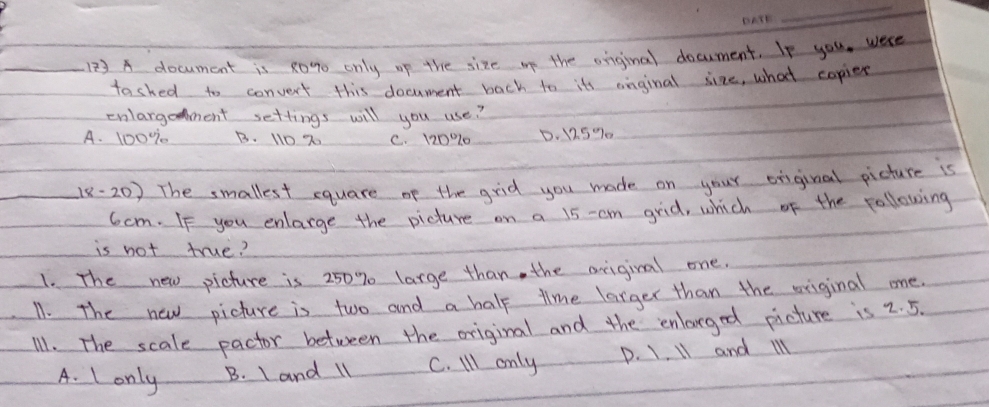 DATE
17) A document is 80% only of the size of the original document. If you were
tasked to convert this document back to its original size, what copier
enlargement settings will you use?
A. 100% B. 110% C. 120% D. 125%
18-20) The smallest square of the grid you made on your original picture is
6cm. If you enlarge the picture on a 15-cm grid, which of the following
is not true?
I. The new picture is 250% large than the original one.
II. The new picture is two and a half time larger than the original one.
III. The scale factor between the original and the enlarged picture is 2.5.
A. I only B. I and II C. III only D. I. II and III